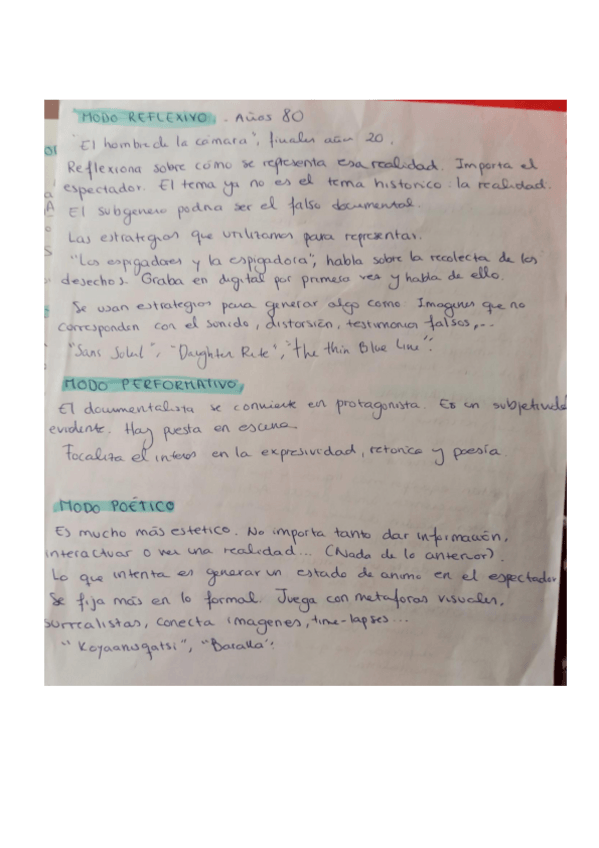 MODO REFLEXIVO. Años 80
"El hombre de la cámara", finales años 20.
Reflexiona sobre cómo se representa esa realidad. Importa el
espectador. El tema ya no es el tema historico: la realidad.
El subgenero podria ser el falso documental.
Las estrategias que utilizamos para representar.
"Los espigadores y la espigadora", habla sobre la recolecta de los
desechos. Graba en digital por primera ves y habla de ello.
Se usan estrategias para generar algo como. Imagenes que no
corresponden con el sonido, distorsión, testimonios falsos,...
"Sans Soleil", "Daughter Rite", "The thin Blue Line".
MODO PERFORMATIVO
El documentalista se convierte en protagonista. Es un subjetividad
evidente. Hay puesta en escena.
Focaliza el interes en la expresividad, retorica y poesía.
MODO POÉTICO
Es mucho más estetico. No importa tanto dar información,
interactuar o ver una realidad... (Nada de lo anterior).
Lo que intenta es generar un estado de animo en el espectador
Se fija más en lo formal. Juega con metaforas visuales,
surrealistas, conecta imagenes, time-lapses...
"Koyaanisqatsi", "Baraka".